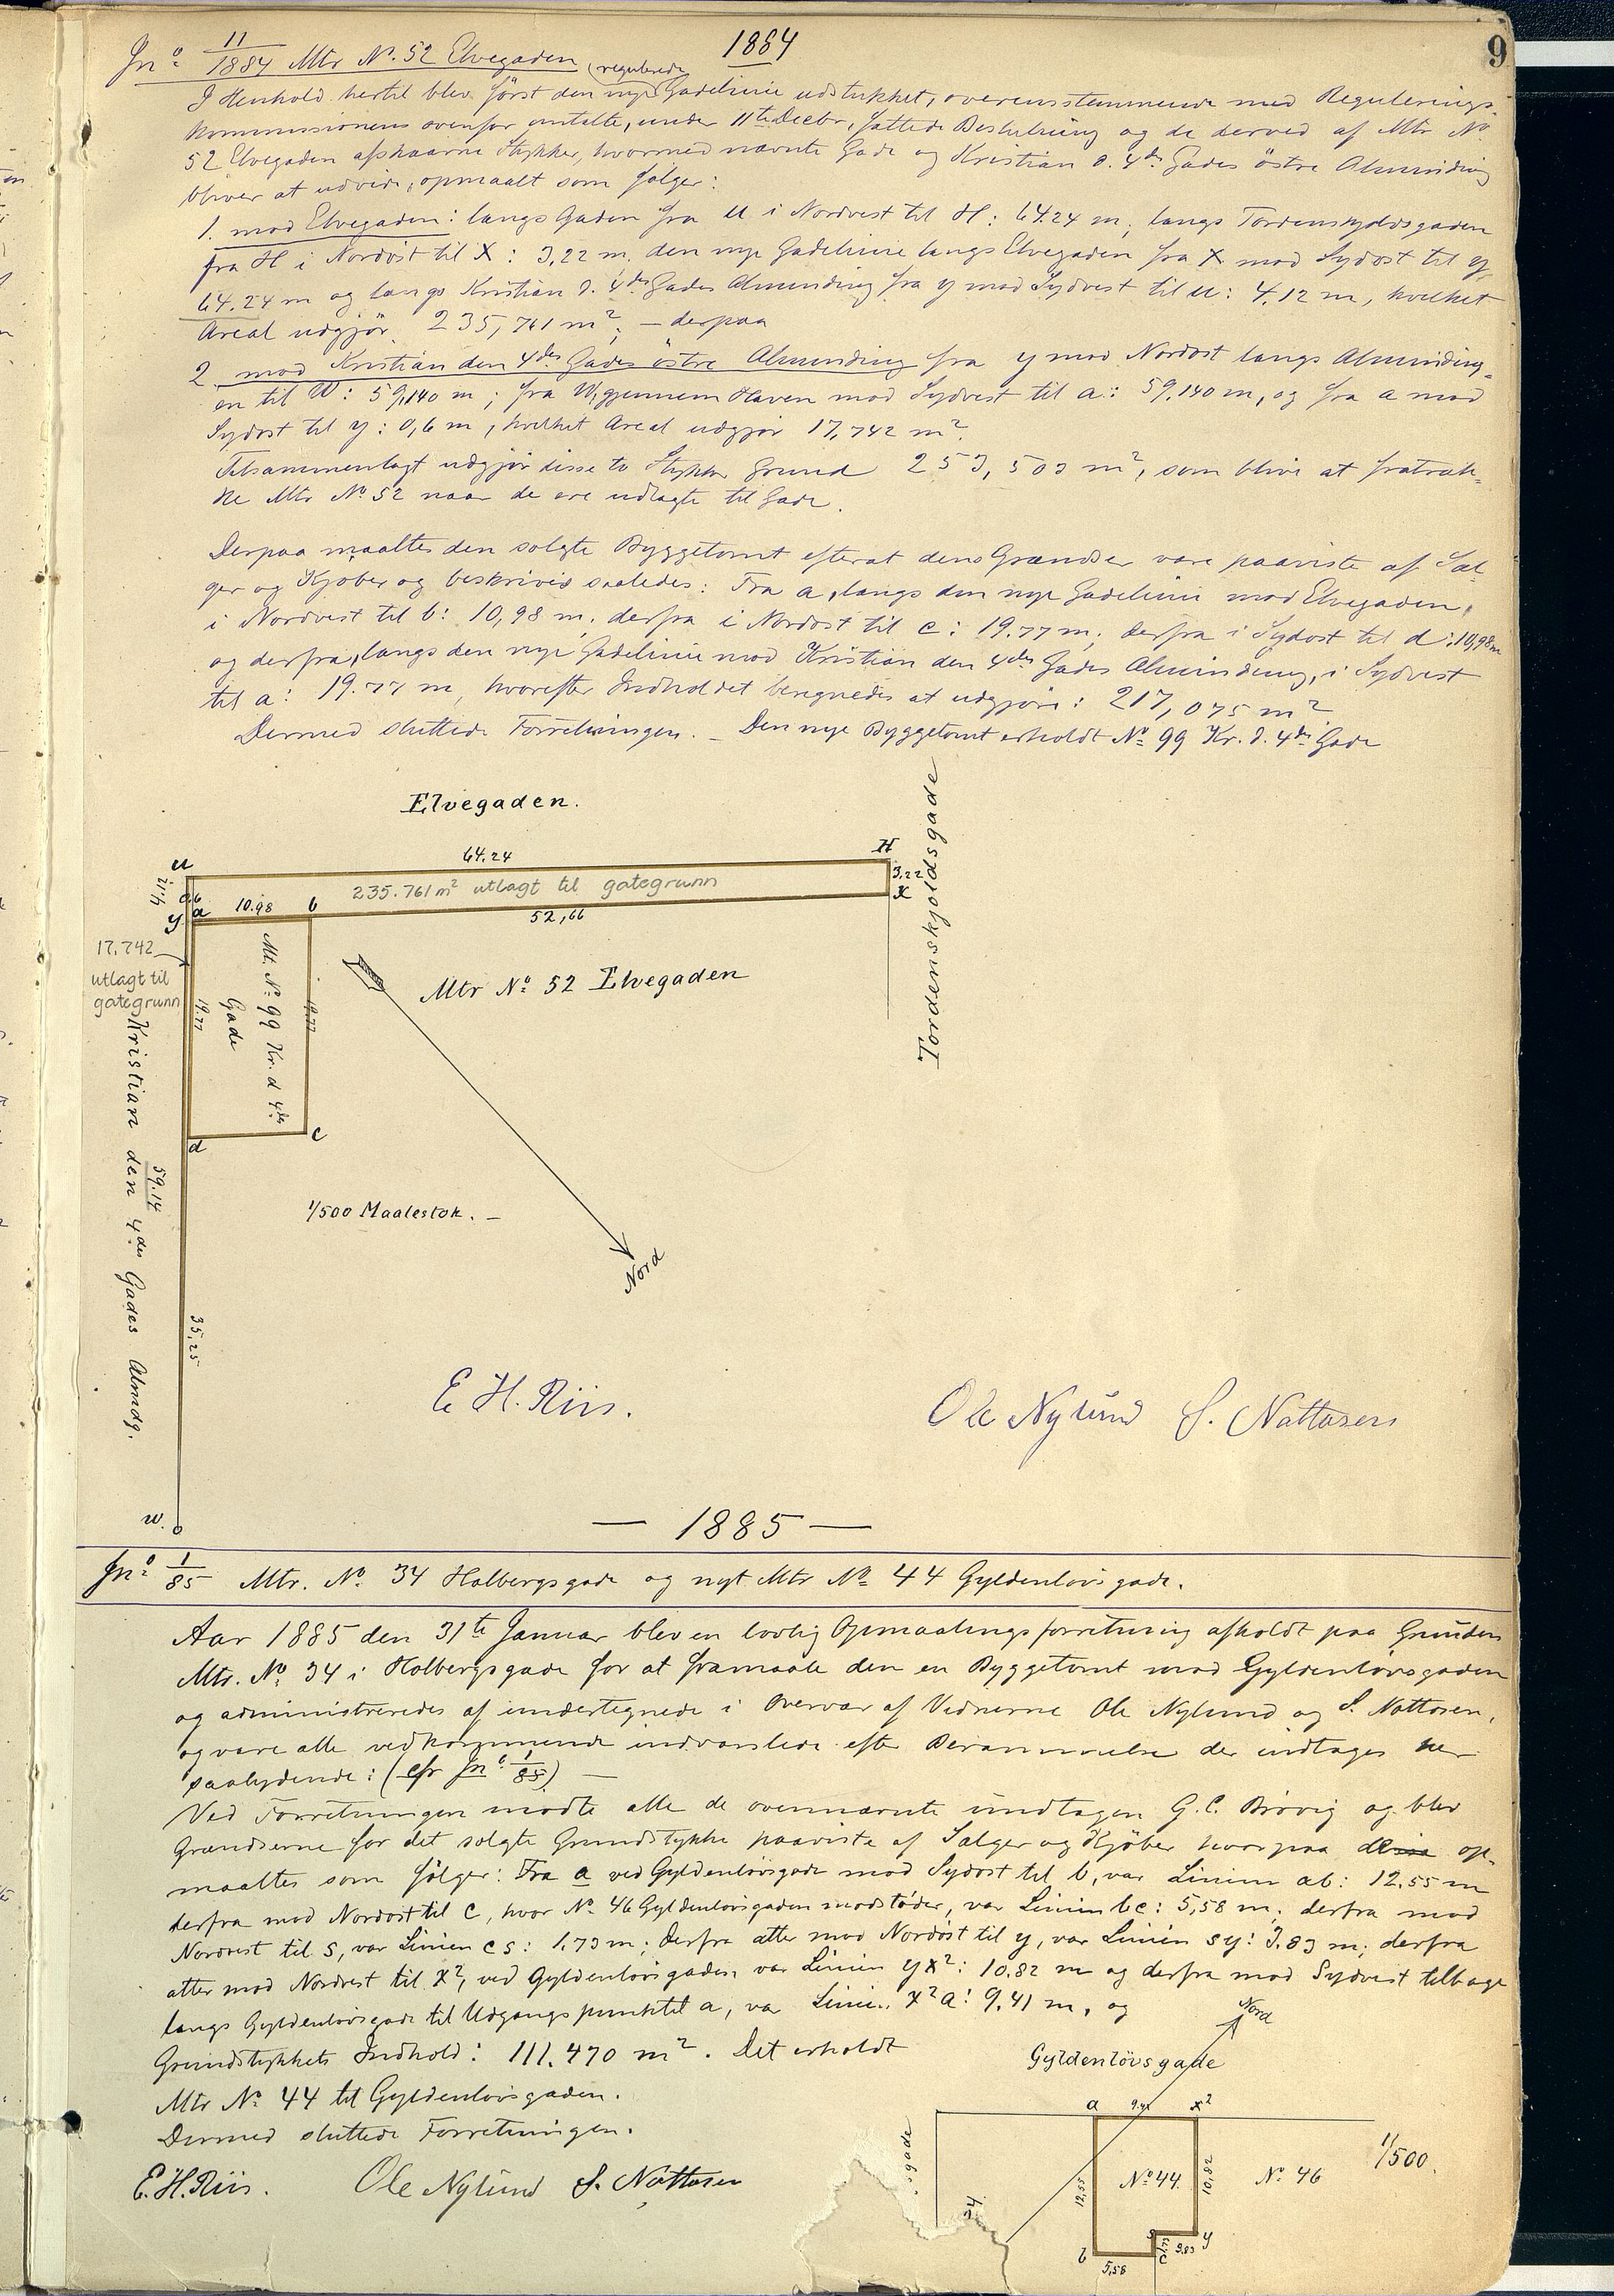 1884
9
Jn⁰ 11/1884 Mtr Nº 52 Elvegaden
(regulerede
I Henhold hertil blev først den nye Gadelinie udstukket, overensstemmende med Regulerings-
kommissionens ovenfor antalte, under 11te Decbr, fattede Beslutning og de derved af Mtr Nº
52 Elvegaden afskaarne Stykker, hvormed nævnte Gade og Kristian d. 4des Gades östre Almending
bliver at udvide, opmaalt som følger:
1. mod Elvegaden: langs Gaden fra u i Nordvest til H: 64.24 m, langs Tordenskjoldsgaden
fra H i Nordöst til X: 3,22 m, den nye Gadelinie langs Elvegaden fra X mod Sydöst til y
64.24 m og langs Kristian d. 4des Gades Almending fra y mod Sydvest til u: 4,12 m, hvilket
Areal udgjør 235,761 m²; — derpaa
2. mod Kristian den 4des Gades östre Almending fra y mod Nordöst langs Almending-
en til W: 59,140 m; fra W, gjennem Haven mod Sydvest til a: 59,140 m, og fra a mod
Sydöst til y: 0,6 m, hvilket Areal udgjør 17,742 m².
Tilsammenlagt udgjør disse to Stykker Grund 253,503 m², som blive at fratræk-
ke Mtr Nº 52 naar de ere udlagte til Gade.
Derpaa maaltes den solgte Byggetomt efterat dens Grændser vare paaviste af Sæl-
ger og Kjøber og beskrives saaledes: Fra a, langs den nye Gadelinie mod Elvegaden,
i Nordvest til b: 10,98 m, derfra i Nordöst til c: 19.77 m, derfra i Sydöst til d: 10,98 m
og derfra, langs den nye Gadelinie mod Kristian den 4des Gades Almindeng, i Sydvest
til a: 19.77 m, hvorefter Indholdet beregnedes at udgjøre: 217,075 m²
Dermed sluttede Forretningen. — Den nye Byggetomt erholdt Nº 99 Kr. d. 4des Gade
Elvegaden.
Tordenskjoldsgade
u
64.24
H
4,12
0,6
235.761 m² utlagt til gategrunn
3,22
x
y
a
10.98
b
52,66
17.742
utlagt til
gategrunn
Mt. Nº 99 Kr. d 4des
Gade
19.77
19.77
Mtr Nº 52 Elvegaden
d
c
Kristian den 4des Gades Almdg.
59.14
1/500 Maalestok. —
Nord
35,25
E. H. Riis.
Ole Nylund S. Nattosen
w.
— 1885 —
Jn⁰ 1/85 Mtr. Nº 34 Holbergsgade og nyt Mtr Nº 44 Gyldenløvsgade.
Aar 1885 den 31te Januar blev en lovlig Opmaalingsforretning afholdt paa Grunden
Mtr. Nº 34 i Holbergsgade for at framaale den en Byggetomt mod Gyldenløvsgaden
og administreredes af undertegnede i Overvær af Vidnerne Ole Nylund og S. Nattosen,
og vare alle vedkommende indvarslede efter Berammelse der indtages her
saalydende: (cfr Jn⁰ 1/85) —
Ved Forretningen mödte alle de ovennævnte undtagen G. C. Brøvig og blev
Grændserne for det solgte Grundstykke paaviste af Sælger og Kjøber hvorpaa op-
maaltes som følger: Fra a ved Gyldenløvsgade mod Sydöst til b, var Linien ab: 12.55 m
derfra mod Nordöst til c, hvor Nº 46 Gyldenløvsgaden modstöder, var Linien bc: 5,58 m; derfra mod
Nordvest til s, var Linien cs: 1.73 m; derfra atter mod Nordöst til y, var Linien sy: 3.83 m; derfra
atter mod Nordvest til x², ved Gyldenløvsgaden var Linien yx²: 10,82 m og derfra mod Sydvest tilbage
langs Gyldenløvsgade til Udgangspunktet a, var Linien x²a: 9,41 m, og
Grundstykkets Indhold: 111.470 m². Det erholdt
Mtr Nº 44 til Gyldenløvsgaden.
Dermed sluttede Forretningen.
E. H. Riis. Ole Nylund S. Nattosen
Nord
Gyldenlövsgade
a
9.41
x²
sgade
34
12,55
Nº 44
10,82
Nº 46
1/500.
s
y
b
5,58
c
1,73
3.83